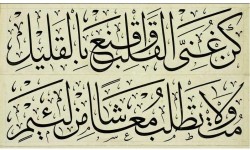 كن غني القلب واقنع بالقليل
مت ولا تطلب معاشا من لئيم